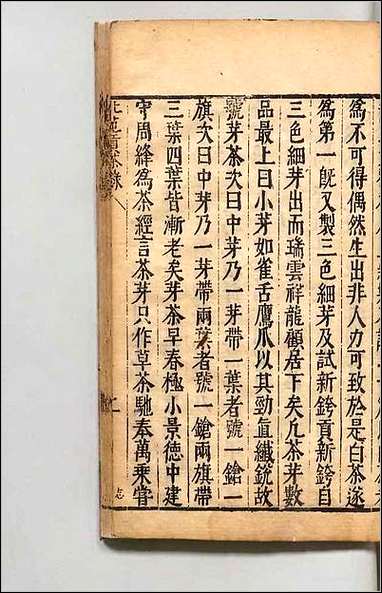 為不可得偶然生出非人力可致於是白茶遂
為第一旣又製三色細芽及試新銙貢新銙自
三色細芽出而瑞雲祥龍顧居下矣凢茶芽數
品最上曰小芽如雀舌鷹爪以其勁直纎銳故
號芽茶次曰中芽乃一芽帶一葉者號一鎗一
旗次曰中芽乃一芽帶兩葉者號一鎗兩旗帶
三葉四葉皆漸老矣芽茶早春極少景徳中建
守周絳為茶經言茶芽只作草茶馳奉萬乗嘗
北苑貢茶錄
二